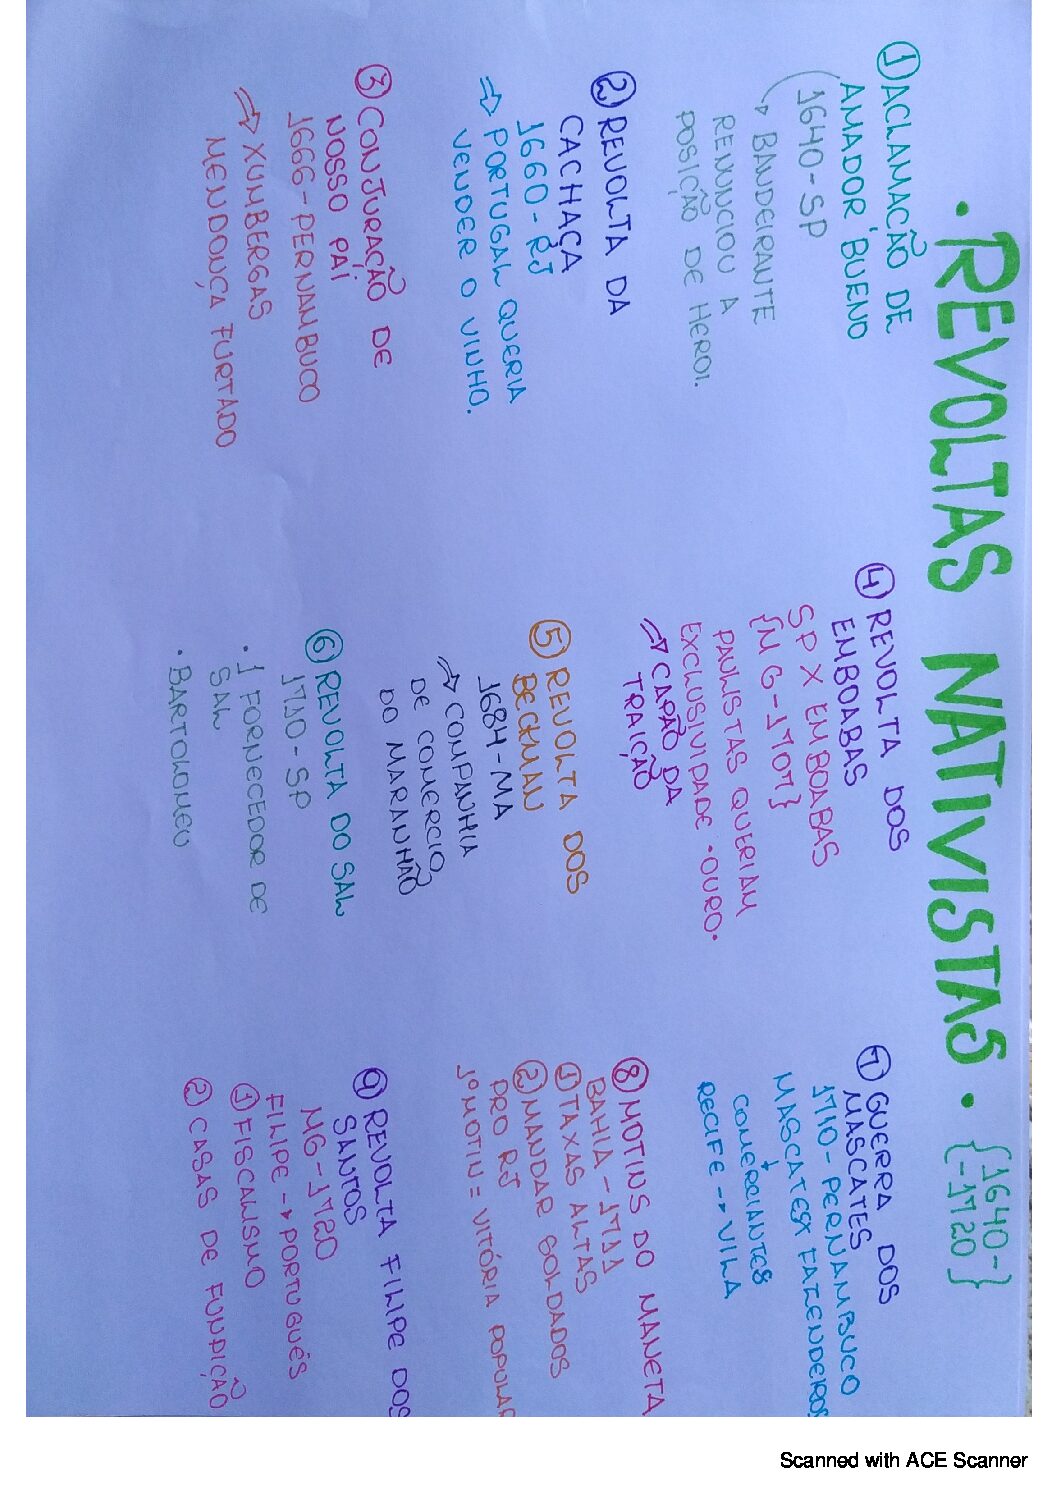 • REVOLTAS NATIVISTAS • {1640-}
{-1720}
① ACLAMAÇÃO DE
AMADOR BUENO
1640-SP
↳ BANDEIRANTE
RENUNCIOU A
POSIÇÃO DE HEROI.
② REVOLTA DA
CACHAÇA
1660-RJ
⇒ PORTUGAL QUERIA
VENDER O VINHO.
③ CONJURAÇÃO DE
NOSSO PAI
1666-PERNAMBUCO
⇒ XUMBERGAS
MENDONÇA FURTADO
④ REVOLTA DOS
EMBOABAS
SP X EMBOABAS
{MG-1707}
PAULISTAS QUERIAM
EXCLUSIVIDADE •OURO•
⇒ CAPÃO DA
TRAIÇÃO
⑤ REVOLTA DOS
BECKMAN
1684-MA
⇒ COMPANHIA
DE COMERCIO
DO MARANHÃO
⑥ REVOLTA DO SAL
1710-SP
• 1 FORNECEDOR DE
SAL
• BARTOLOMEU
⑦ GUERRA DOS
MASCATES
1710-PERNAMBUCO
MASCATES X FAZENDEIROS
↓
COMERCIANTES
RECIFE → VILA
⑧ MOTINS DO MANETA
BAHIA-1711
① TAXAS ALTAS
② MANDAR SOLDADOS
PRO RJ
1º MOTIN = VITÓRIA POPULAR
⑨ REVOLTA FILIPE DOS
SANTOS
MG-1720
FILIPE → PORTUGUÊS
① FISCALISMO
② CASAS DE FUNDIÇÃO
Scanned with ACE Scanner